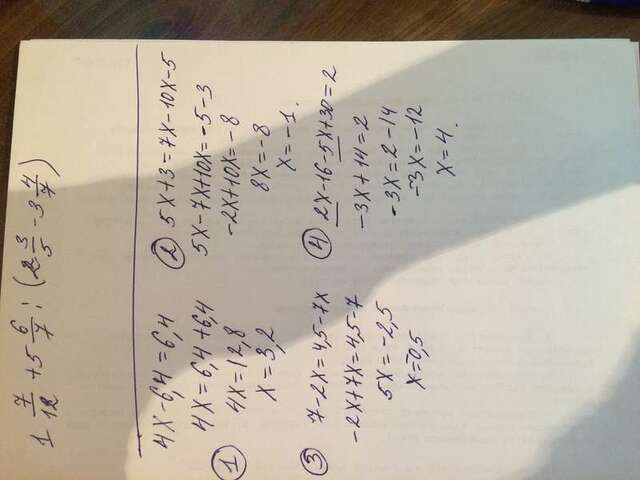 1 7/12 + 5 6/7 : (2 3/5 - 3 4/7)
① 4x-6,4=6,4
4x=6,4+6,4
4x=12,8
x=3,2
② 5x+3=7x-10x-5
5x-7x+10x=-5-3
-2x+10x=-8
8x=-8
x=-1.
③ 7-2x=4,5-7x
-2x+7x=4,5-7
5x=-2,5
x=-0,5
④ 2x-16-5x+30=2
-3x+14=2
-3x=2-14
-3x=-12
x=4.